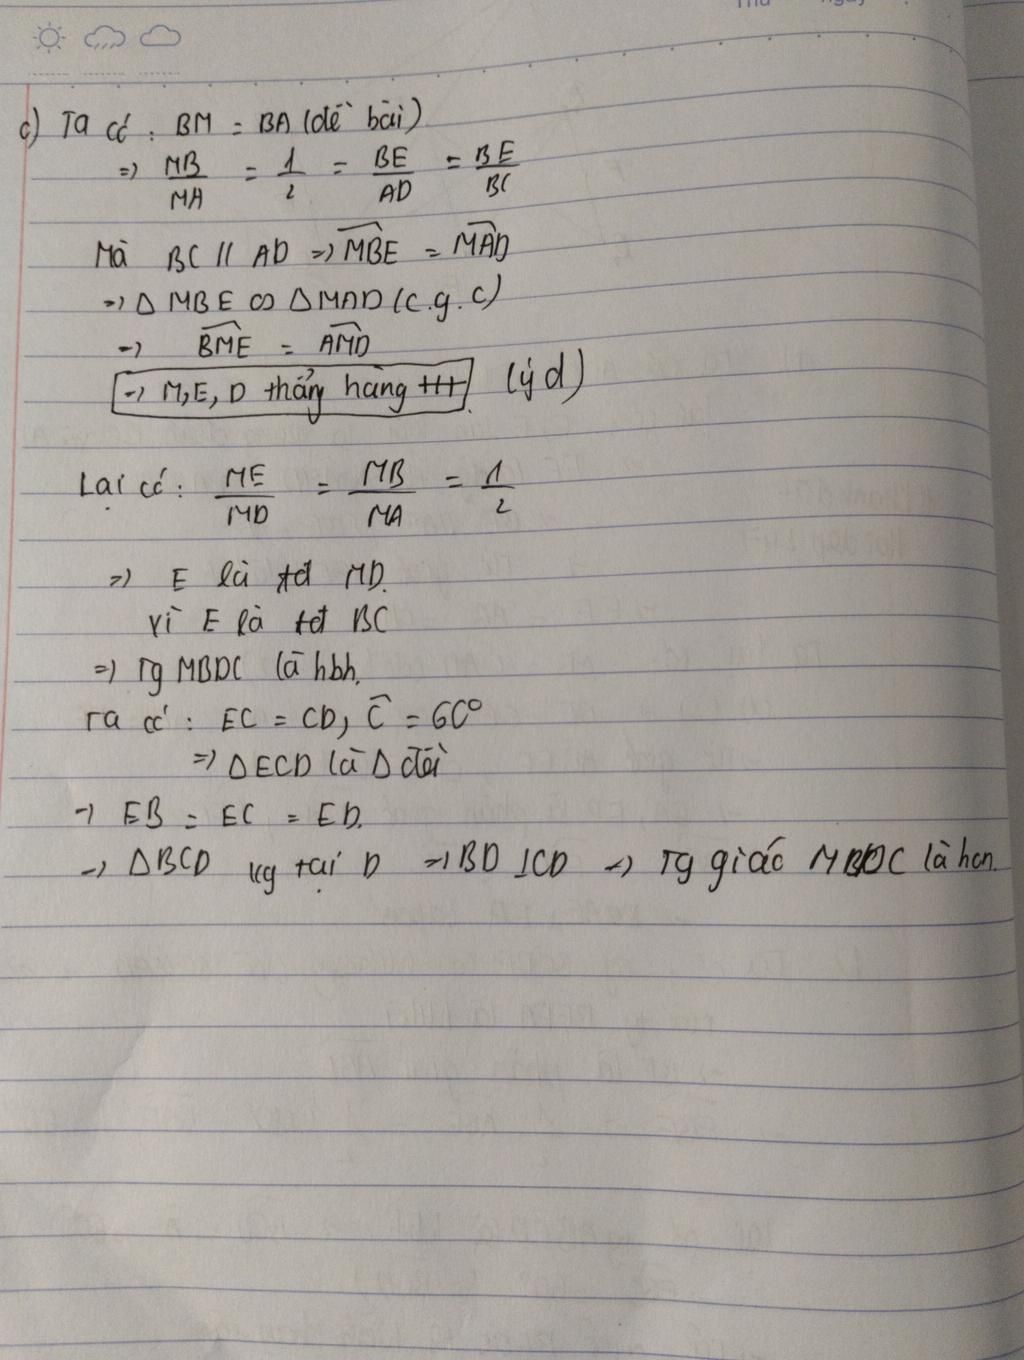 Thứ ngày
c) Ta có : BM = BA (đề bài)
=> MB/MA = 1/2 = BE/AD = BE/BC
Mà BC // AD => MBE = MAD
=> Δ MBE ∽ Δ MAD (c.g.c)
=> BME = AMD
=> M, E, D thẳng hàng (ý d)
Lại có : ME/MD = MB/MA = 1/2
=> E là tđ MD.
Vì E là tđ BC
=> Tg MBDC là hbh.
Ta có : EC = CD, C = 60°
=> Δ ECD là Δ đều
=> EB = EC = ED.
=> Δ BCD tại D => BD ⊥ CD => Tg giác MBDC là hcn.